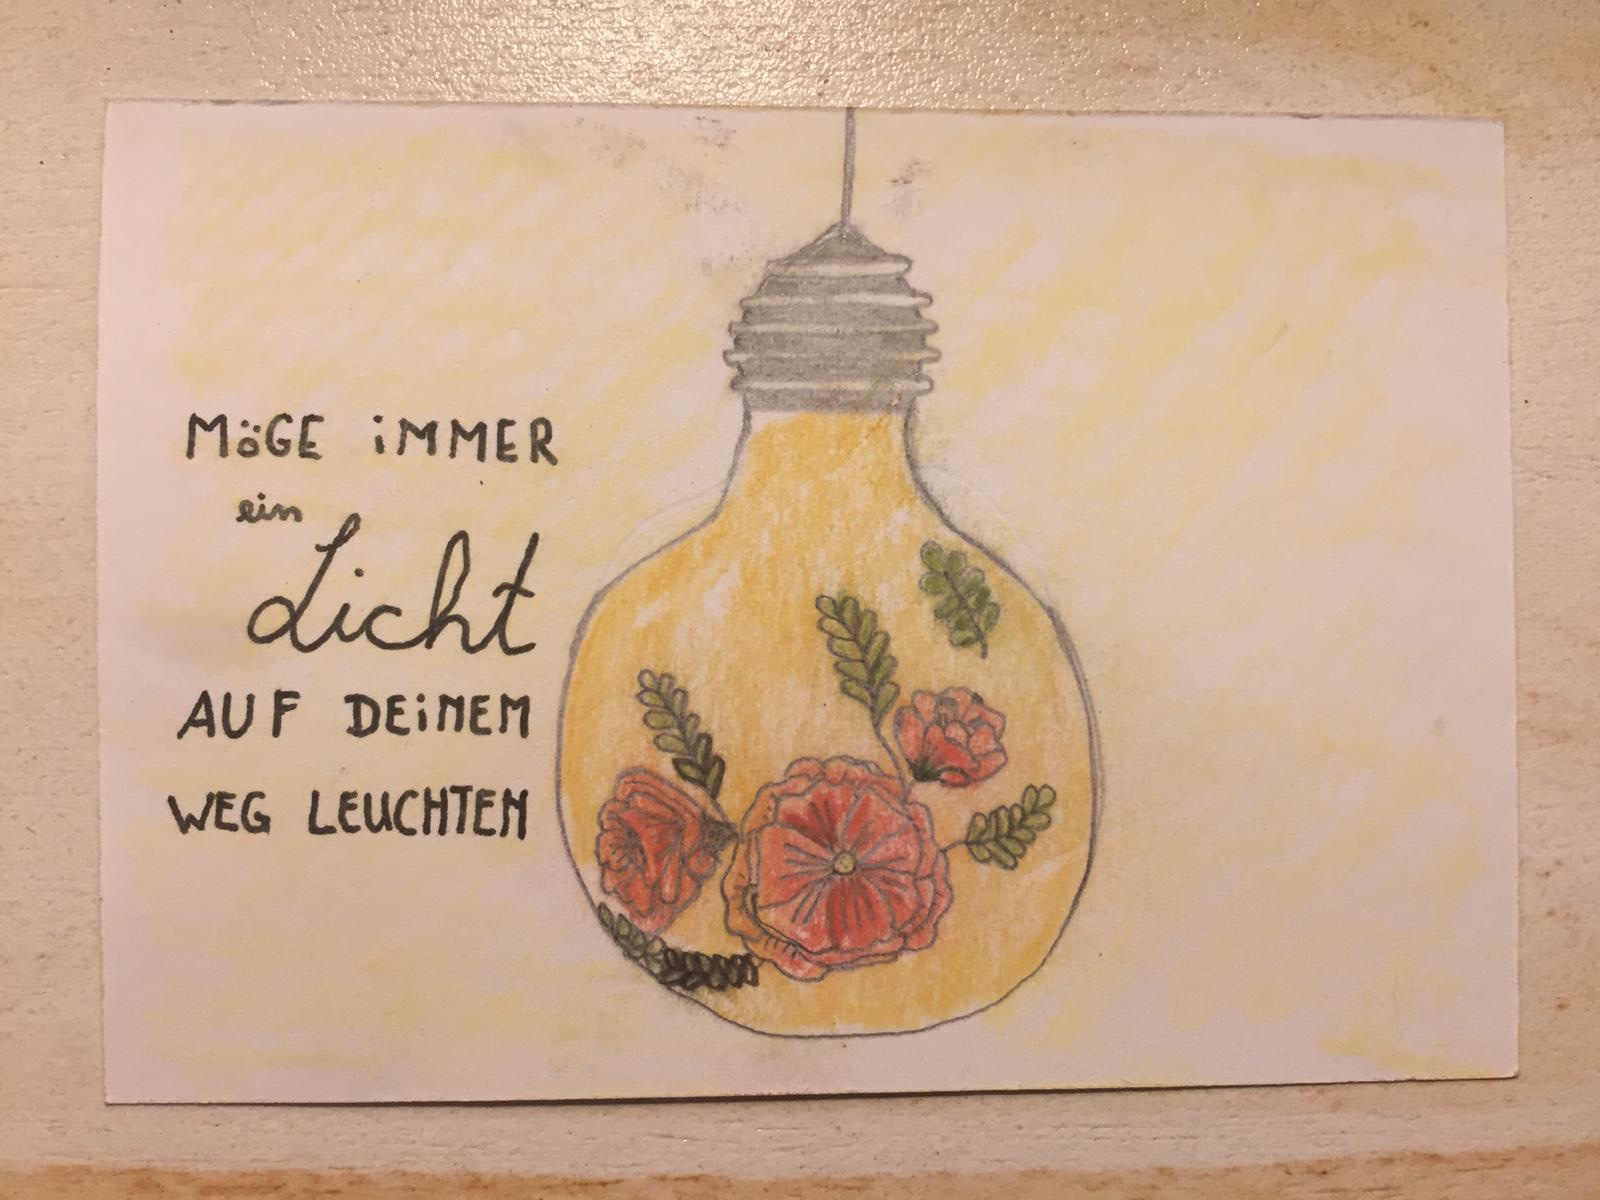 MöGE iMMER
ein
Licht
AUF DEiNEM
WEG LEUCHTEN